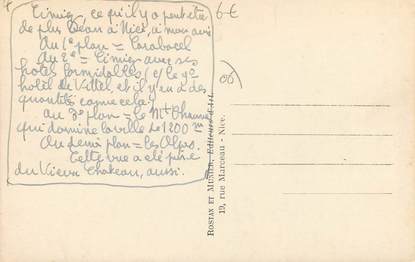 Cimiez, ce qu'il y a peut-être
de plus beau à Nice, à mon avis
Au 1er plan = Carabacel
Au 2e = Cimiez avec ses
hôtels formidables (c/ le gd
hôtel de Vittel, et il y en a des
quantités comme cela)
au 3e plan = le Mt Chauve
qui domine la ville de 1200 m
Au dernier plan = les Alpes.
Cette vue a été prise
du Vieux Château, aussi.
6€
06)
ROSTAN ET MUNIER, Editeurs d'Art
19, rue Marceau - Nice.